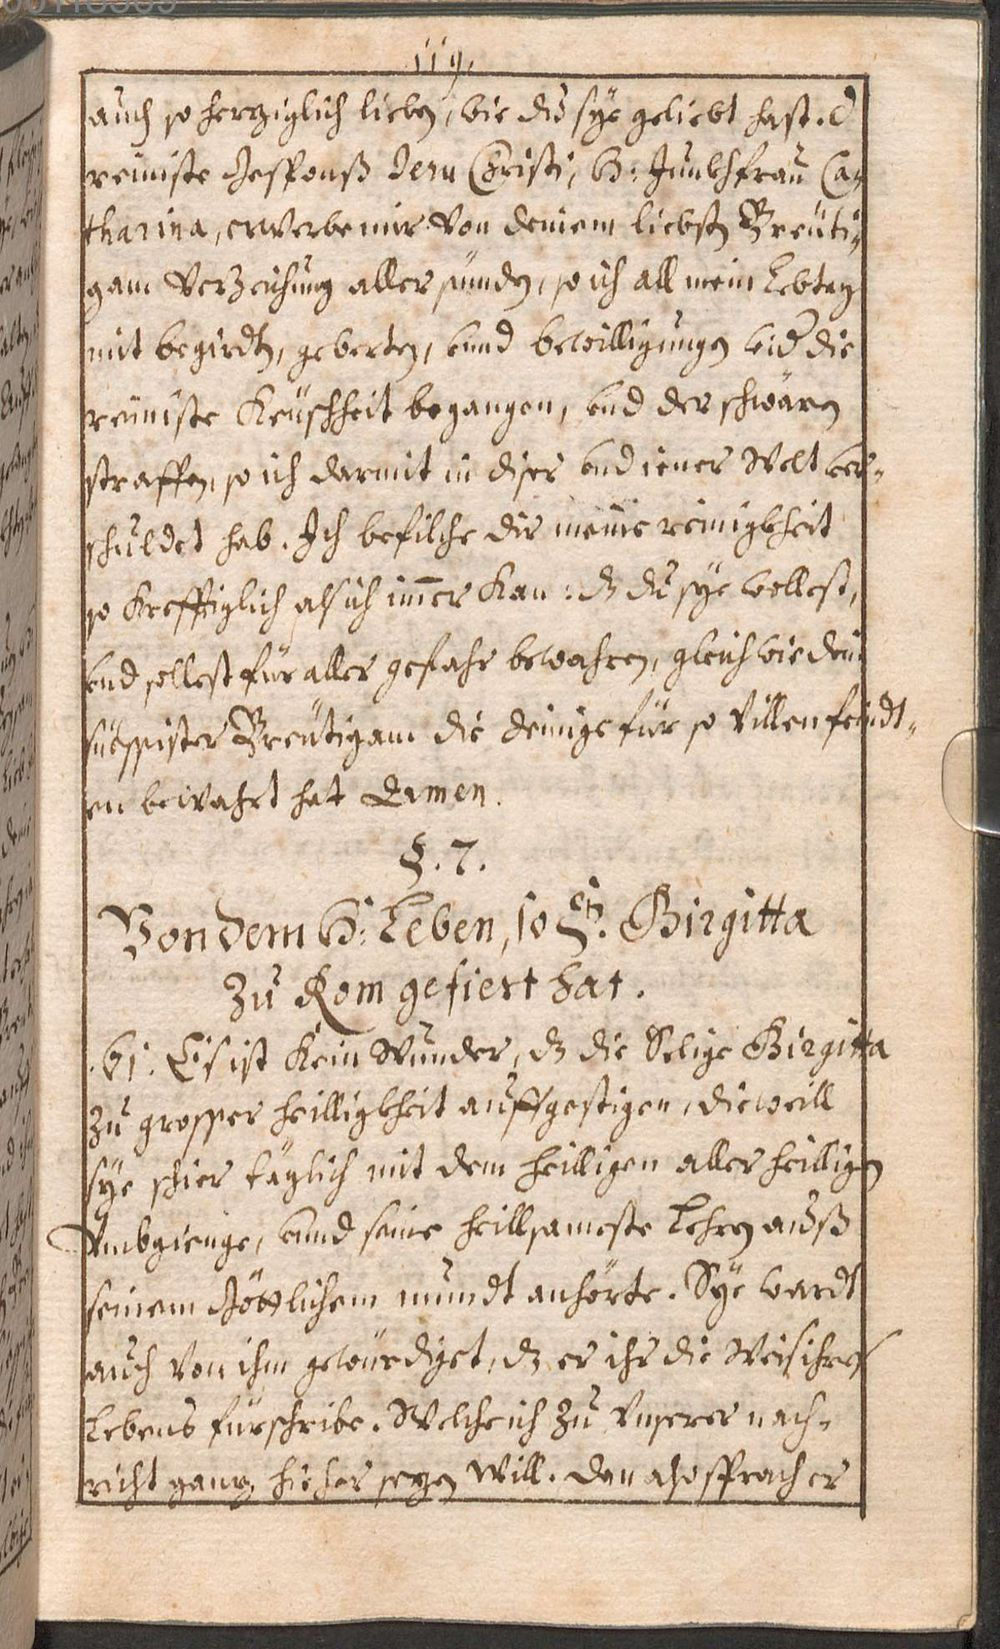 119.
auch so hertziglich lieben, wie du sye geliebt hast. O
reiniste Gesponß Jesu Christi, H: Junkhfrau Ca=
tharina, erwerbe mir von deinem liebsten Breüti=
gam Verzeichung aller sünden, so ich all mein Lebtag
mit begirdten, geberten, vnnd bewilligungen wid die
reiniste Keüschheit begangen, vnd der schwären
straffen, so ich darmit in diser vnd iener Welt ver=
schuldet hab. Ich befilche dir meine reinigkheit
so krefftiglich als ich im̅er kan: dz du sye wellest,
vnd sollest für aller gefahr bewahren, gleich wie dein
süesssister Breütigam die deinige für so villen feindt=
en bewahrt hat Amen.
§. 7.
Von dem H: Leben, so S. Birgitta
zu Rom gefiert hat.
61. Es ist kein Wunder, dz die Selige Birgitta
zu grosser heilligkheit auffgestigen, dieweill
sye schier täglich mit dem heilligen aller heilligen
Vmbgienge, vnnd seine heillsameste Lehren auß
seinem Göttlichem mundt anhörte. Sye wardt
auch von ihm gewürdiget, dz er ihr die Weis ihres
Lebens fürschribe. Welche ich zu vnserer nach=
richt gantz hieher setzen will. dan also sprach er